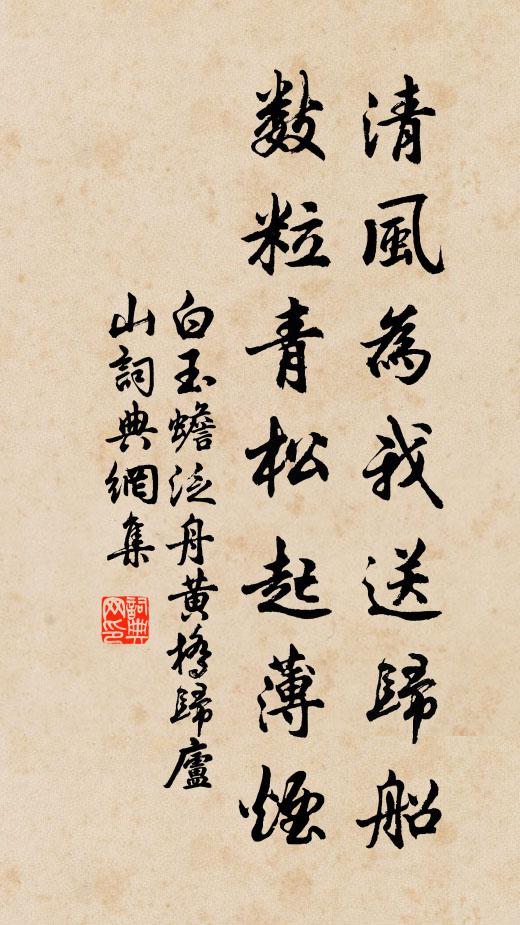 清風為我送歸船
數粒青松起薄煙
白玉蟾泛舟黃橋歸廬
山詞典網集
詞典
网印